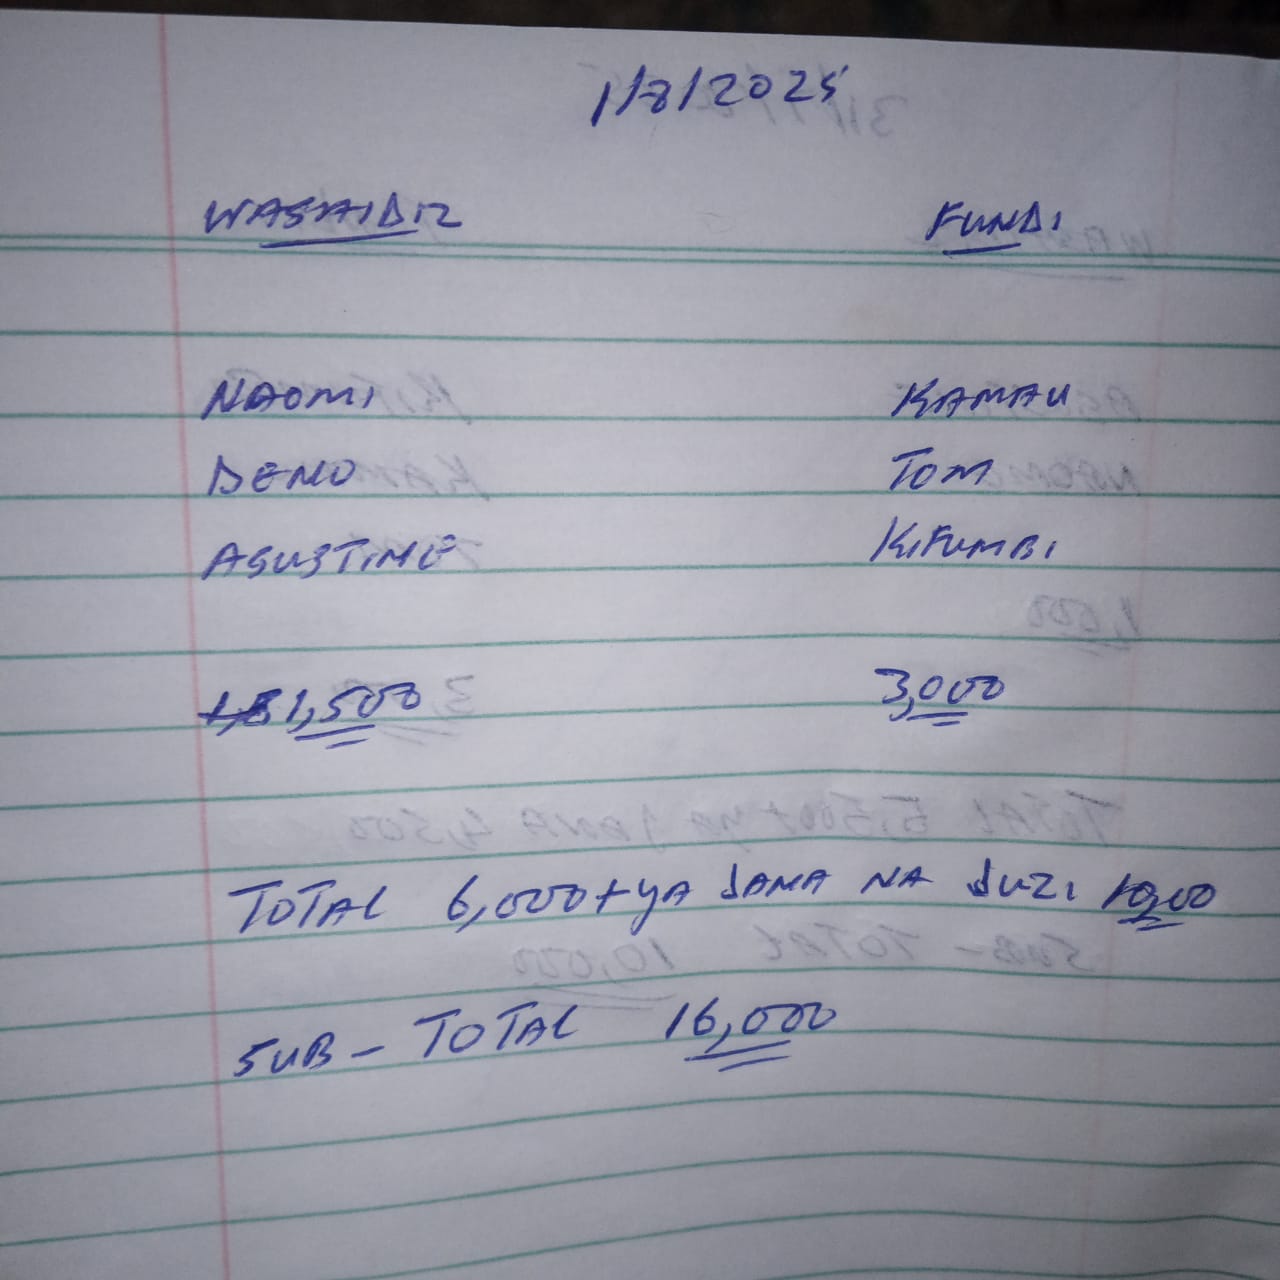 1/8/2025
WASAIDIZ FUNDI
NAOMI KAMAU
DENO TOM
AGUSTINE KIFUMBI
1,500 3,000
TOTAL 6,000 + YA JANA NA JUZI 10,000
SUB - TOTAL 16,000